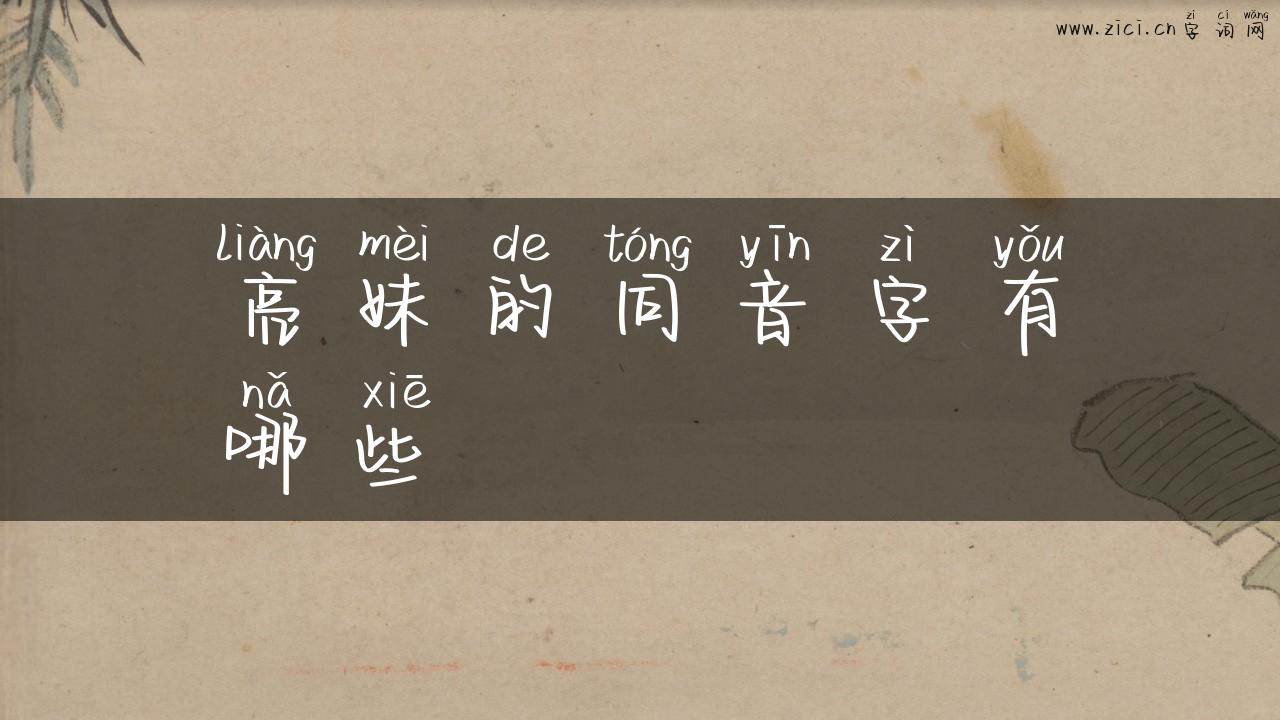 zì cí wǎng
www.zici.cn 字 词 网
liàng mèi de tóng yīn zì yǒu
亮 妹 的 同 音 字 有
nǎ xiē
哪 些